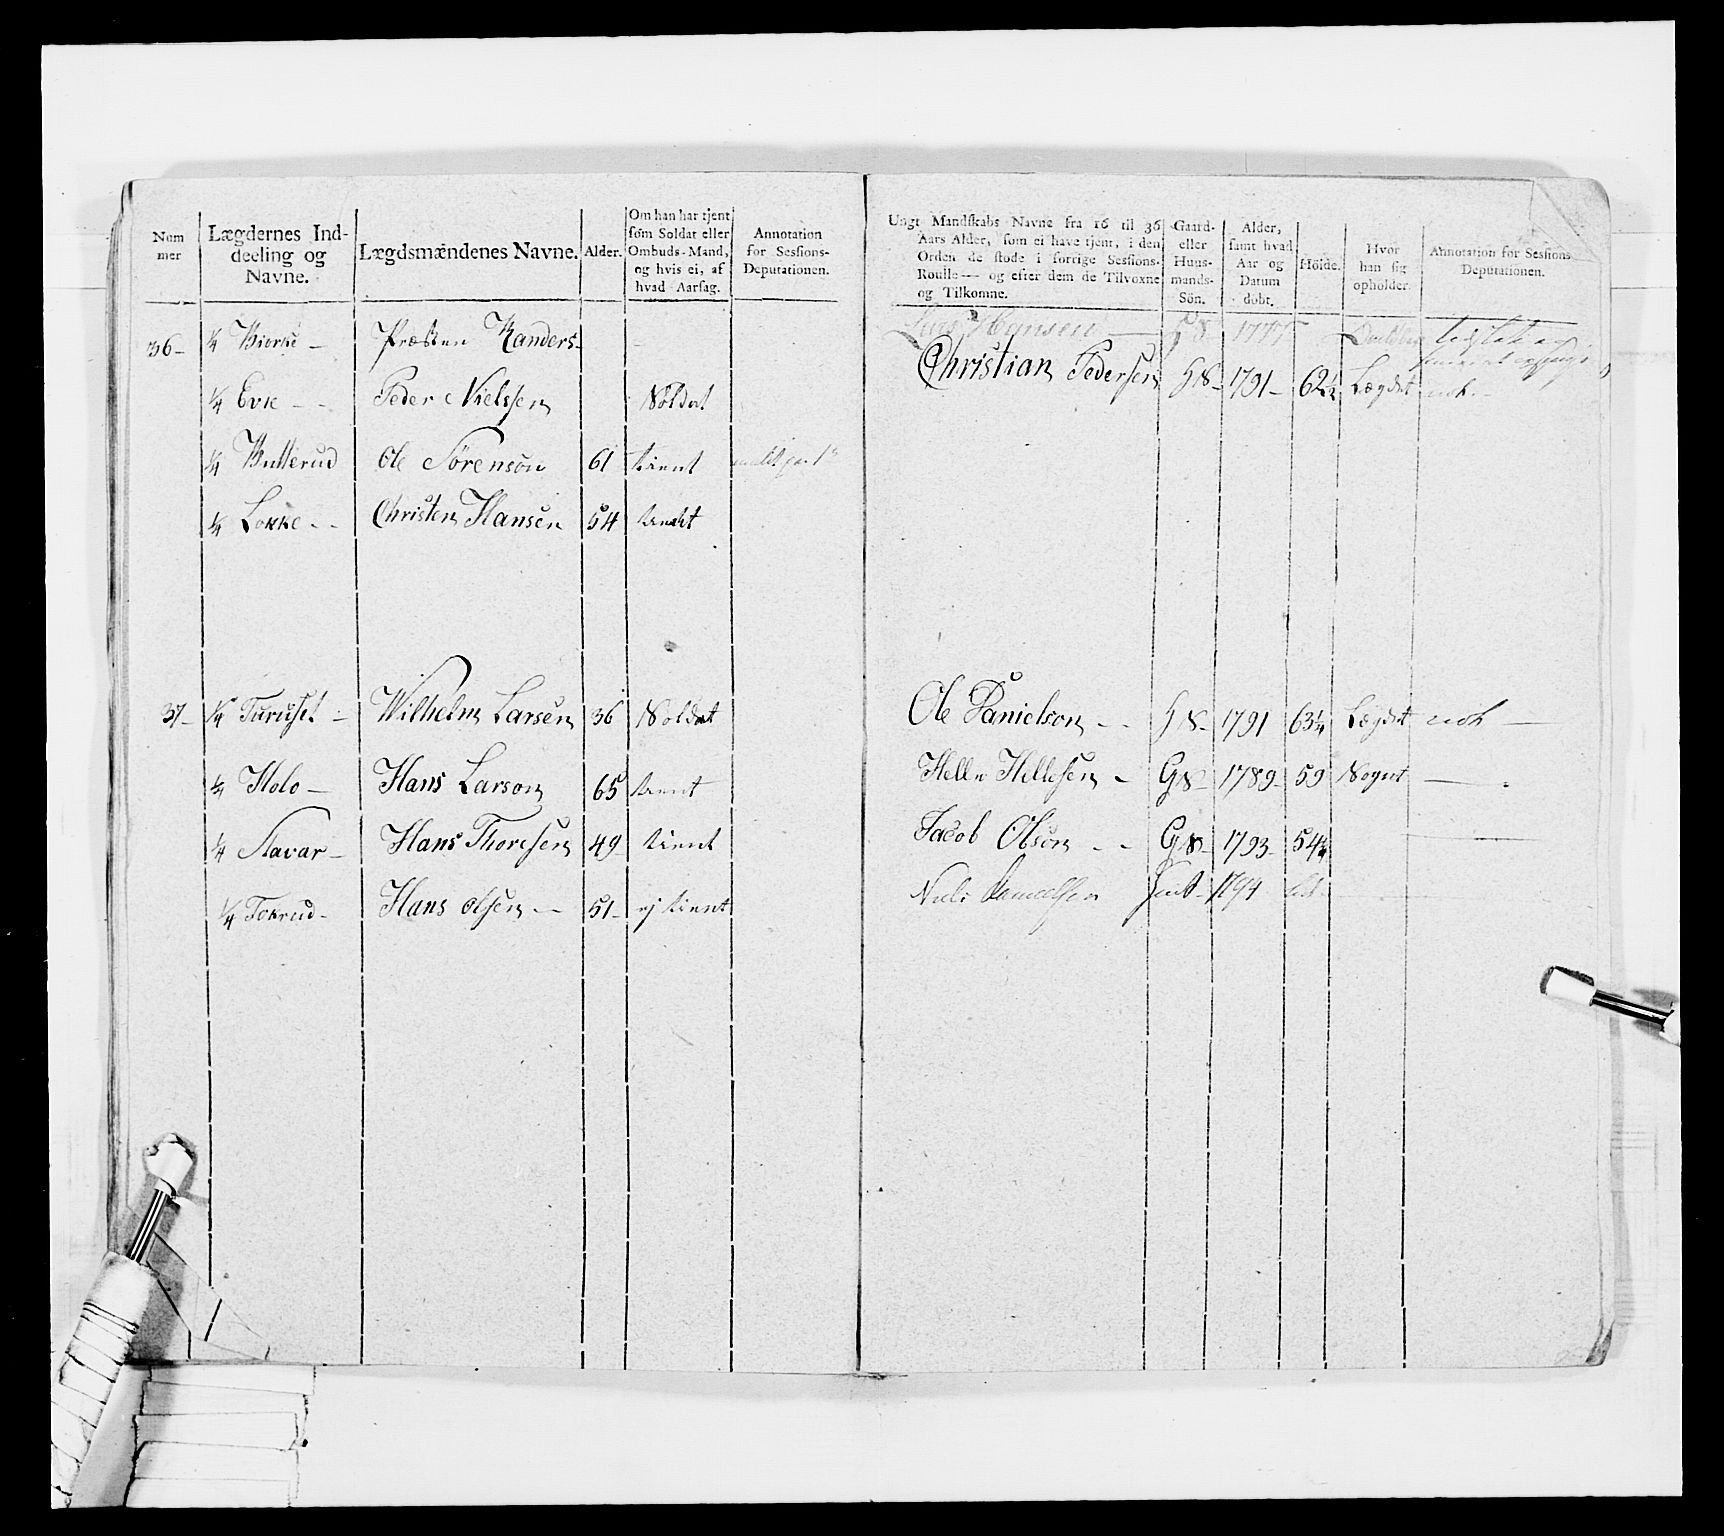 Num
mer
Lægdernes Ind-
deeling og
Navne.
Lægdsmændenes Navne.
Alder.
Om han har tjent
som Soldat eller
Ombuds-Mand,
og hvis ei, af
hvad Aarsag.
Annotation
for Sessions-
Deputationen.
36- ¼ Biorke - Præsten Randers-
¼ Evie - - Peder Nielssen Soldat
¼ Butterud Ole Sørensøn 61 tient
¼ Løkke - - Christen Hansen 54 tient
37- ¼ Turuset - Wilhelm Larsen 36 Soldat
¼ Holo - Hans Larson 65 tient
¼ Stavar - Hans Thoresen 49 tient
¼ Tokrud - Hans Olsen - - 51- ej tient
Ungt Mandskabs Navne fra 16 til 36
Aars Alder, som ei have tjent, i den
Orden de stode i forrige Sessions-
Roulle — og efter dem de Tilvoxne
og Tilkomne.
Gaard-
eller
Huus-
mands-
Sön.
Alder,
samt hvad
Aar og
Datum
döbt.
Höide.
Hvor
han sig
opholder.
Annotation for Sessions
Deputationen.
Lars Hansen — 1777
Christian Pedersen HS- 1791- 62½ Lægdet
Ole Danielson - - HS- 1791 63¼ Lægdet nok —
Helle Hellesen - GS- 1789- 59 Sognet —
Jacob Olsøn - - GS- 1793- 54¼ —
Niels 1794